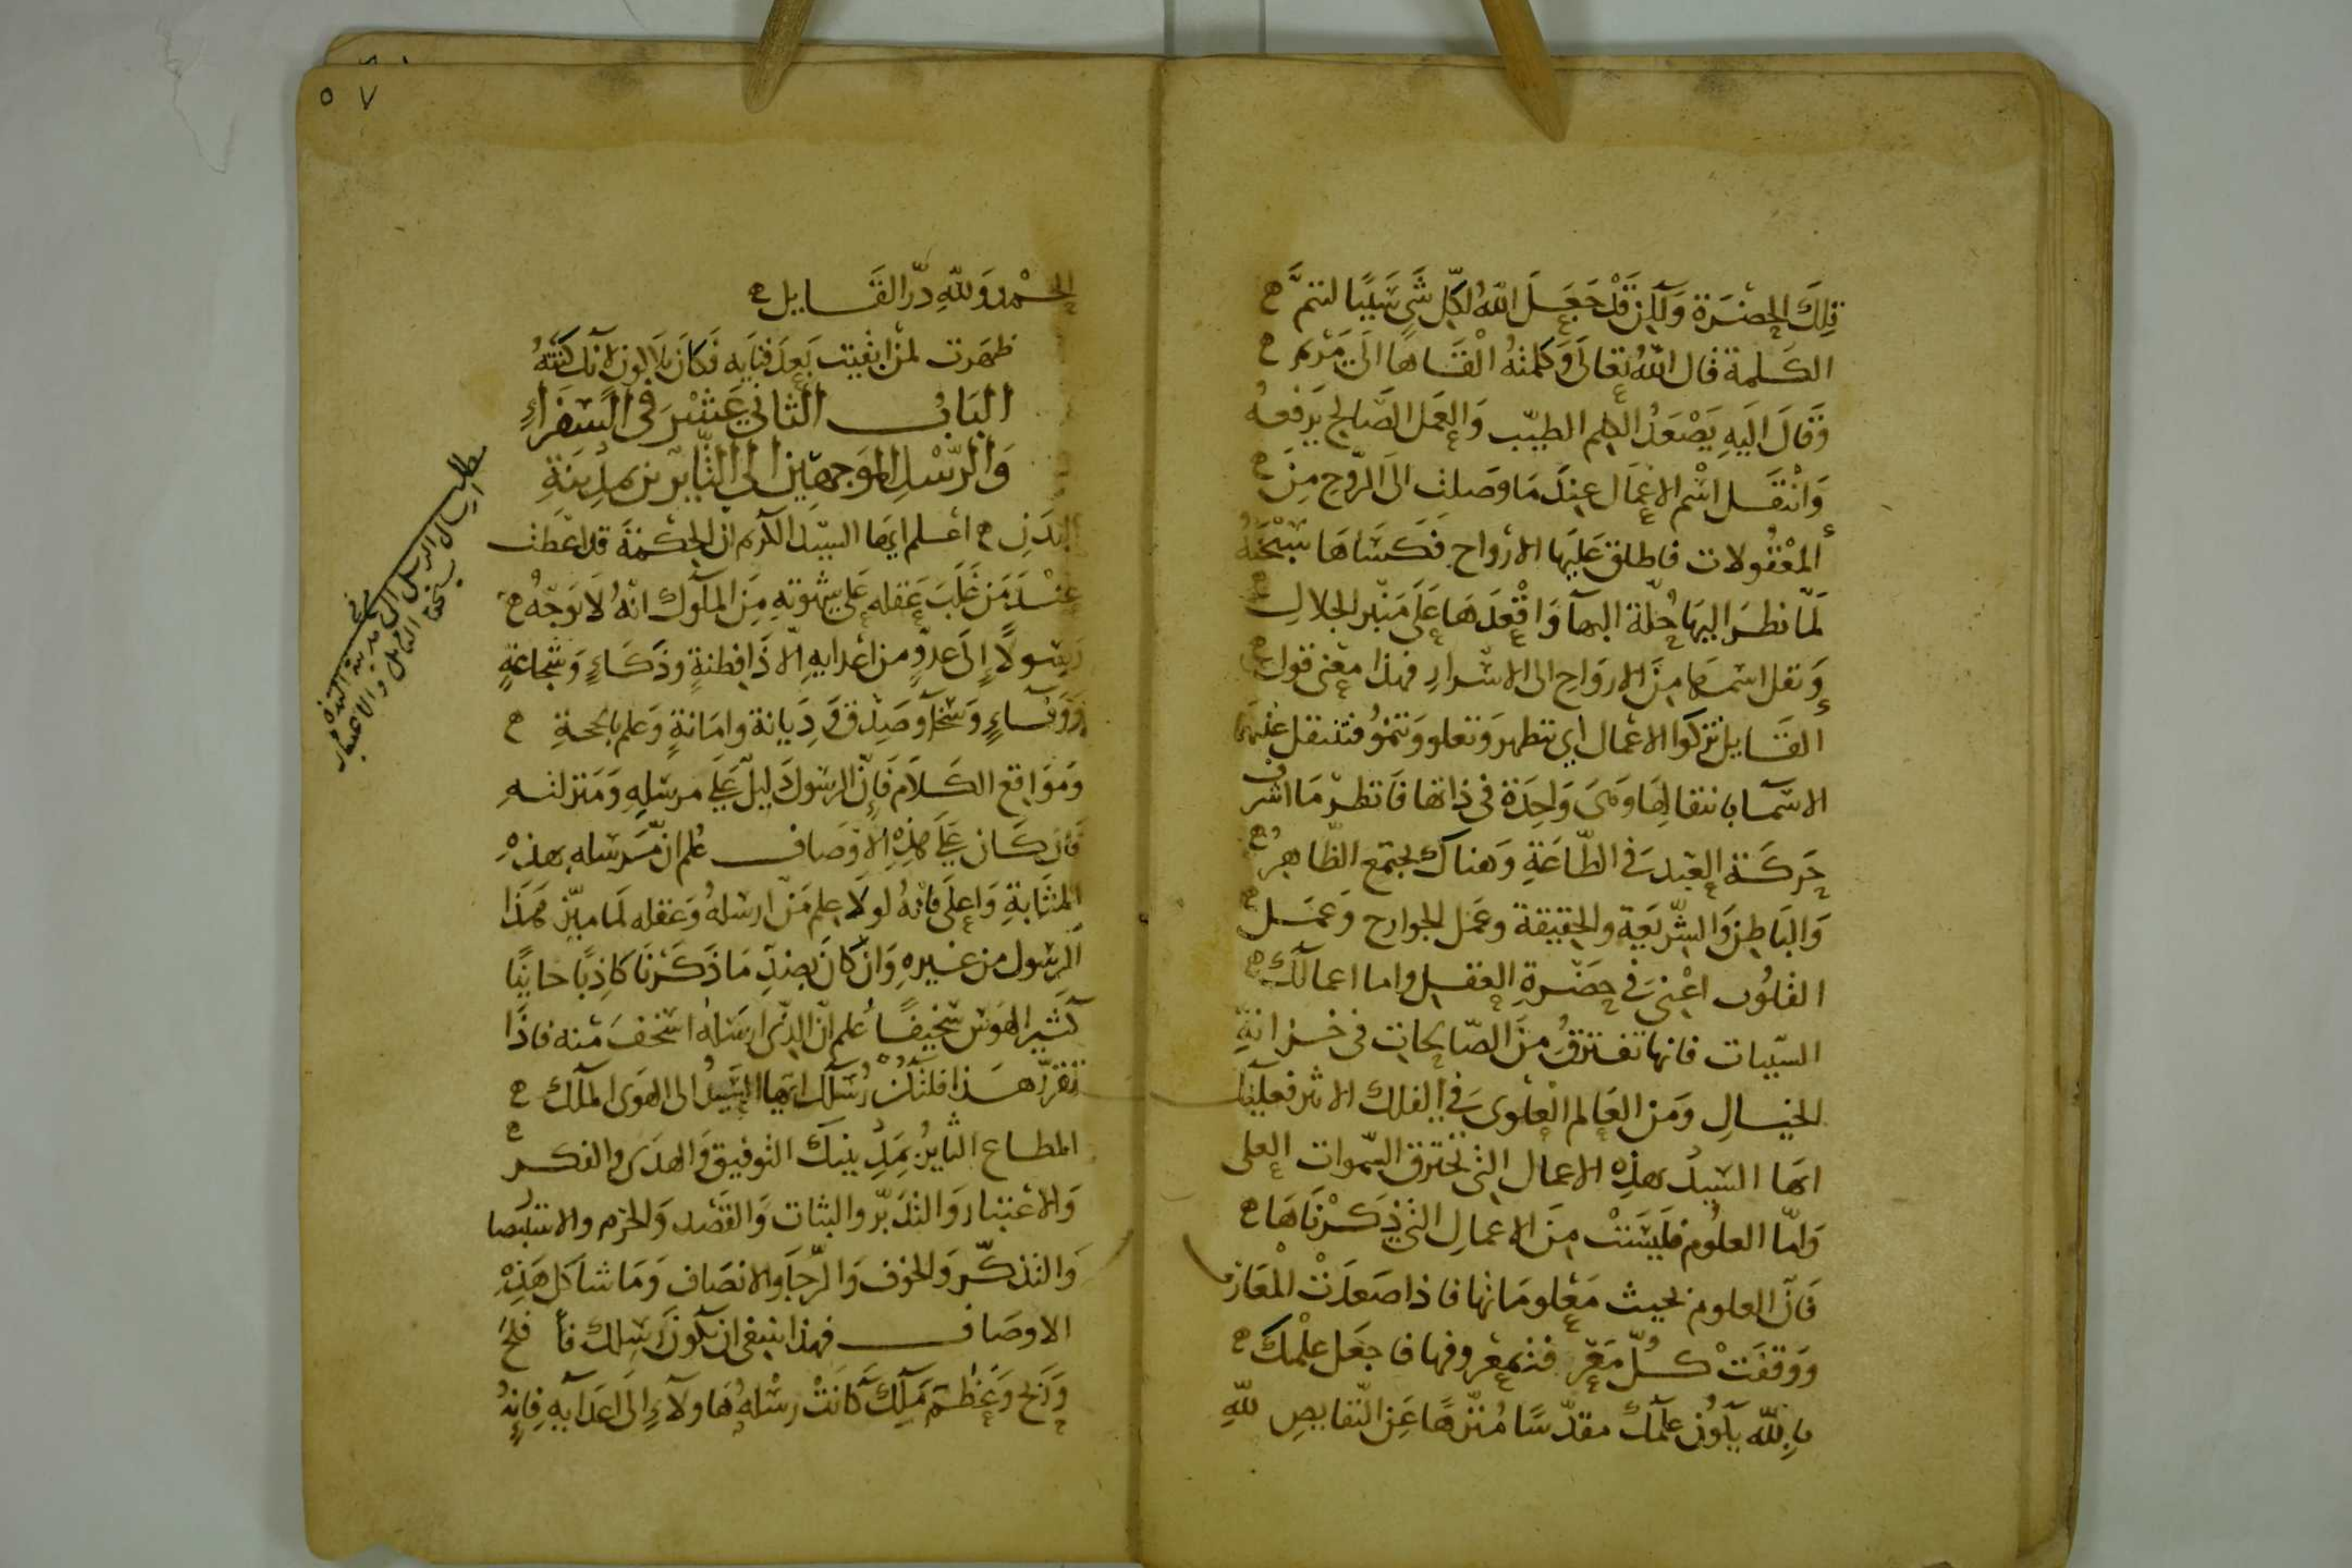 تِلكَ الحضَرَة وَلكِن قَدْ جَعَلَ اللهُ لكِلّ شَىٍ سَبَبًا لتتمَّ
الكَلمة قال اللهُ تعَالَى وَكلمتهُ الْقَاهَا الَى مَرْيم
وَقالَ اليَهِ يَصْعَدُ الكلم الطيّب وَالعَمَل الصَّالح يَرفعهُ
وَانْتَقَل اسْم الاعمَال عِندَ مَا وصَلت الىَ الرّوح مِنَ
المعْقُولات فاطلق عَليَها الارْواح فكسَاهَا سُبْحَنهُ
لمّا نظرَ اليهَا حُلّة البهآ وَاقْعَدَهَا عَلَى مَنْبر الجلالِ
وَنقل اسْمهَا مِنَ الاروَاحِ الى الاسْرارِ فهذا معْنى قول
القَايل تزكوا الاعْمال اي تتطهر وَتعلو وَتنمُو فتنتقل عَليهَا
الاسْمآ بانتقالِهَا وَهىَ وَاحِدَة فى ذاتهَا فَانظرْ مَا اشرفَ
حَركَة العَبْد فى الطّاعَةِ وَهناك يجتمع الظّاهِرُ
وَالبَاطِن وَالشّريعَة والحقيقة وعَمَل الجوارح وَعمَل
القلوُب اعْنِىَ فى حَضْرةِ العقل واما اعمالكَ
السّيِيات فانها تفترقُ منَ الصّالحات فى خزَانةِ
الخيالِ وَمَن العَالم العلوى فى الفلك الاثر فعليكَ
ايهَا السّيدُ بهذه الاعمال التى تخترق السّموات العلى
وَامّا العلوُم فليسَتْ مِنَ الاعمالِ التى ذكرْنَاهَا
فَانّ العلوم بحيث معْلومَاتها فاذا صَعدَتْ المعَارف
وَوَقفَتْ كلّ معْرفة بمعْروفها فاجعَل علْمكَ
بالله يكوُن علمكَ مقدّسًا مُنزّهًا عَن النّقايصِ للهِ
٥٧
الحمْد وَللهِ دَرّ القَايل
ظهَرت لمن ابقيت بَعدَ فنَايه فكانَ بلا كون لانك كنتهُ
البَابُ الثّاني عَشَرَ فى السّفَرآءِ
وَالرّسْلِ الموَجهين الى الثّايرين بمدِينَةِ
البَدَنِ اعْلم ايهَا السّيّد الكريم انّ الحكمَةَ قد اعطت
عِنْدَ مَن غلَبَ عَقله عَلى شهْوتهِ مِنَ الملوك انهُ لا يوَجّهُ
رَسُولًا الى عدوٍّ من اعْدايهِ الّا ذَا فطنةٍ وذكَاءٍ وَشجاعَةٍ
وَوَفآءٍ وَسَخآ وصَدْق وَدِيَانة وامَانةٍ وَعلم بالحجةِ
وَمَوَاقع الكَلام فَانّ الرسُول دَليلٌ عَلَى مرسلِهِ وَمَنزلتهِ
فان كان عَلَى هذِهِ الاوْصَاف عُلم انّ مُرْسله بهذهِ
المثابَةِ وَاعلَى فانهُ لولَا علم مَن ارسلهُ وَعقله لمَا ميّز هَذَا
الرسُول من غيرهِ وَانْ كانَ بضدِّ مَا ذكرْنَا كاذبًا خاينًا
كثير الهَوَس سَخيفًا عُلم انّ الذى ارسَلهُ اسْخف منه فاذَا
تقرّر هذَا فلتكُنْ رُسُلك ايها السّيدُ الى الهَوَى الملك
المطاع الثايرُ بمدِينتكَ التوفيق وَالهدَى والفكر
وَالاعْتبَار وَالتدَبّر والثبات وَالقَصْد وَالحزم والاستبصا
وَالتذكّر وَالخوف وَالرّجآ والانصَاف وَمَا شاكَل هَذِهْ
الاوصَاف فهذا ينبغى ان تكونَ رُسلك فما افلحَ
وَانجحَ وَعَظمَ مَلك كانَتْ رسْلهُ هَاولآءِ الَى اعدَآيهِ فانهُ
مطلب
ارسال الرسل الى مدينة البدن